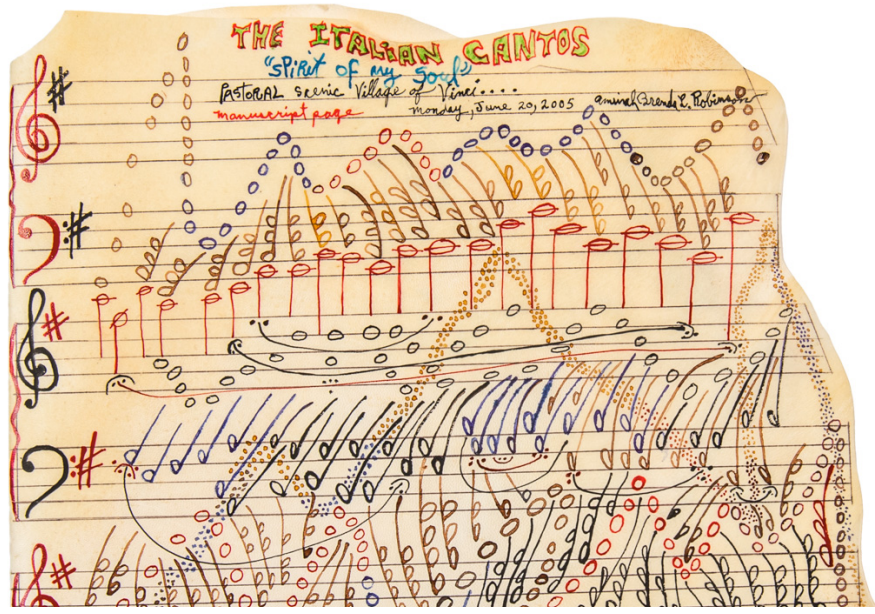 THE ITALIAN CANTOS
"Spirit of my Soul"
PASTORAL scenic Village of Vinci....
manuscript page monday, June 20, 2005 aminah Brenda L. Robinson